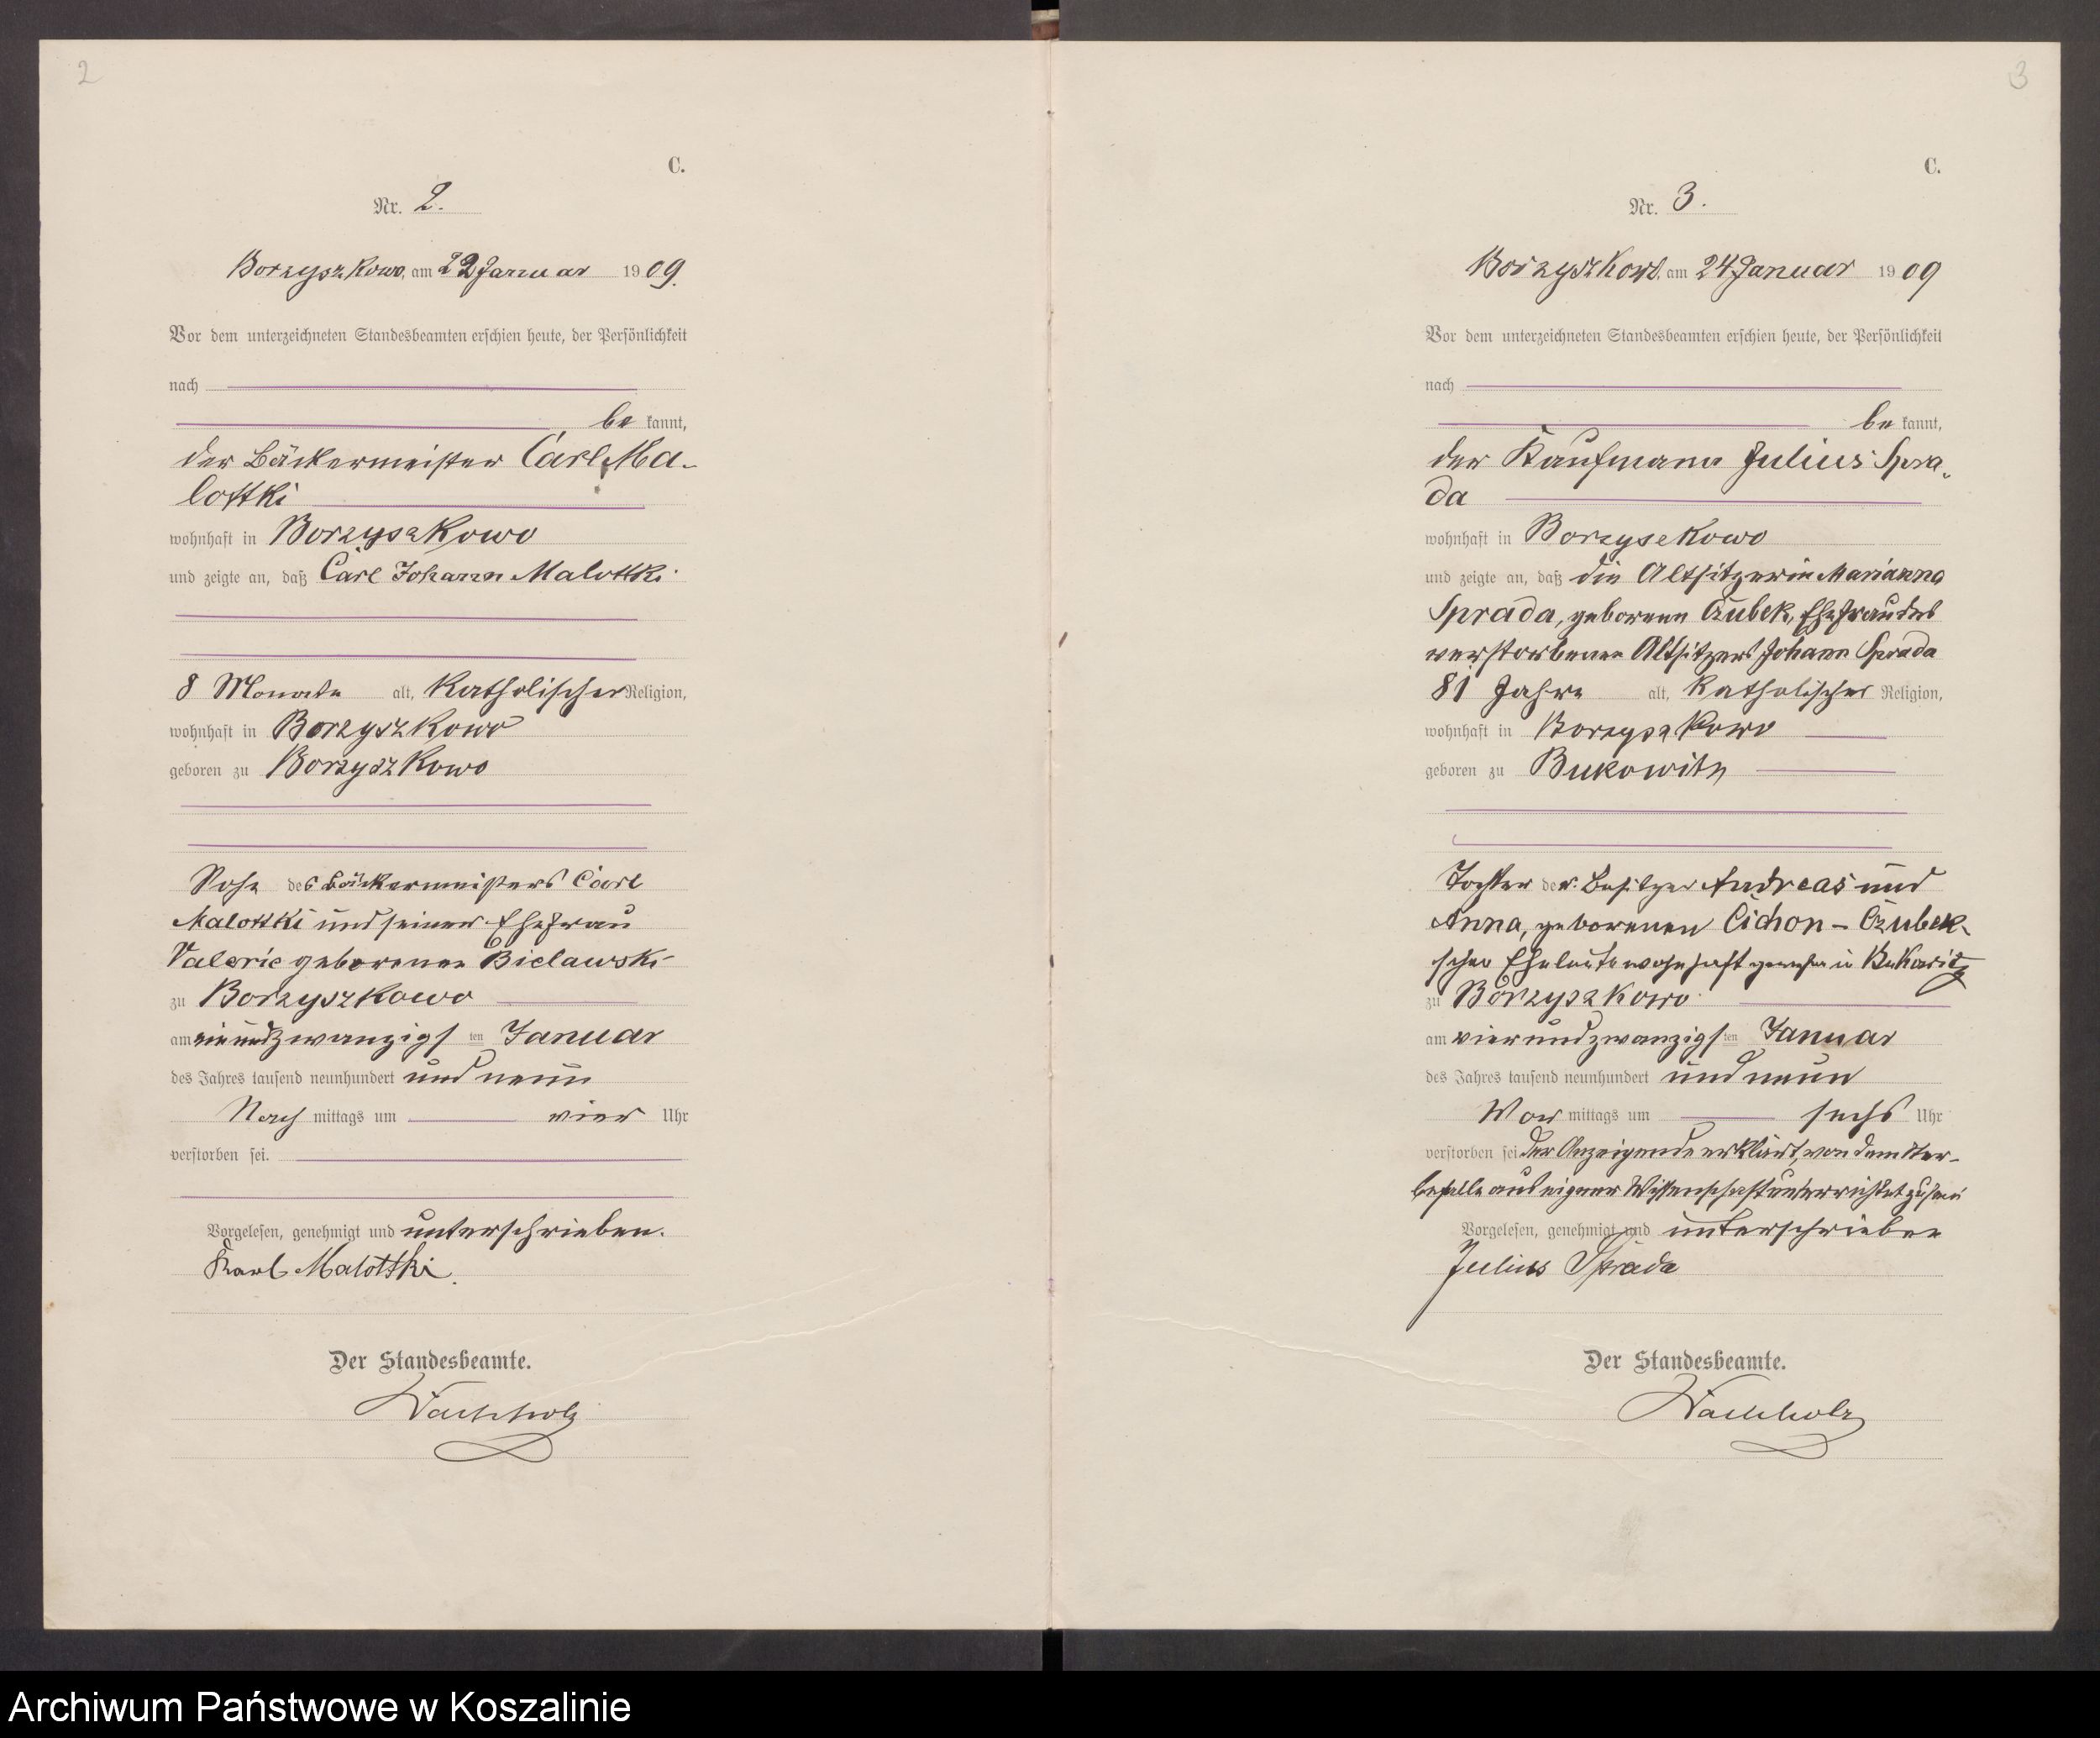 2
C.
Nr. 2.
Borzyszkowo, am 22 Januar 1909.
Vor dem unterzeichneten Standesbeamten erschien heute, der Persönlichkeit
nach
be kannt,
der Bäckermeister Carl Ma-
lottki
wohnhaft in Borzyszkowo
und zeigte an, daß Carl Johann Malottki
8 Monate alt, Katholischer Religion,
wohnhaft in Borzyszkowo
geboren zu Borzyszkowo
Sohn des Bäckermeisters Carl
Malottki und seiner Ehefrau
Valerie geborenen Bielawski
zu Borzyszkowo
am einundzwanzigsten Januar
des Jahres tausend neunhundert und neun
Nach mittags um vier Uhr
verstorben sei.
Vorgelesen, genehmigt und unterschrieben.
Karl Malottki.
Der Standesbeamte.
Wachholz
3
C.
Nr. 3.
Borzyszkowo, am 24 Januar 1909
Vor dem unterzeichneten Standesbeamten erschien heute, der Persönlichkeit
nach
be kannt,
der Kaufmann Julius Spra-
da
wohnhaft in Borzyszkowo
und zeigte an, daß die Altsitzerin Marianna
Sprada, geborene Czubek, Ehefrau des
verstorbenen Altsitzers Johann Sprada
81 Jahre alt, Katholischer Religion,
wohnhaft in Borzyszkowo
geboren zu Bukowitz
Tochter der Besitzer Andreas und
Anna, geborenen Cichon - Czubek-
schen Eheleute wohnhaft gewesen in Bukowitz
zu Borzyszkowo
am vierundzwanzigsten Januar
des Jahres tausend neunhundert und neun
Vor mittags um sechs Uhr
verstorben sei. Der Anzeigende erklärt, von dem Ster-
befalle aus eigener Wissenschaft unterrichtet zu sein
Vorgelesen, genehmigt und unterschrieben
Julius Sprada
Der Standesbeamte.
Wachholz
Archiwum Państwowe w Koszalinie